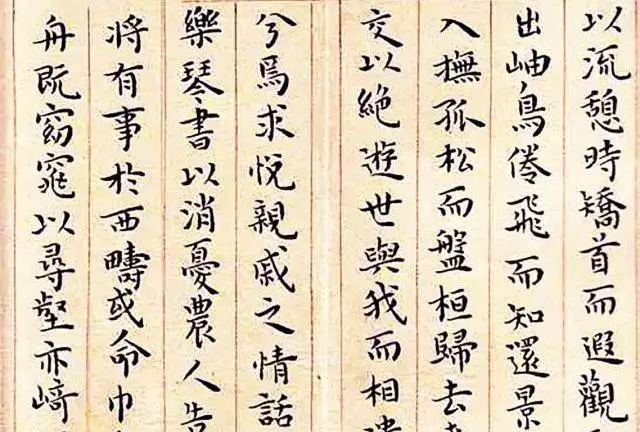 以流憩時矯首而遐觀
出岫鳥倦飛而知還景
入撫孤松而盤桓歸去
交以絕遊世與我而相
兮焉求悅親戚之情話
樂琴書以消憂農人告
將有事於西疇或命巾
舟既窈窕以尋壑亦崎